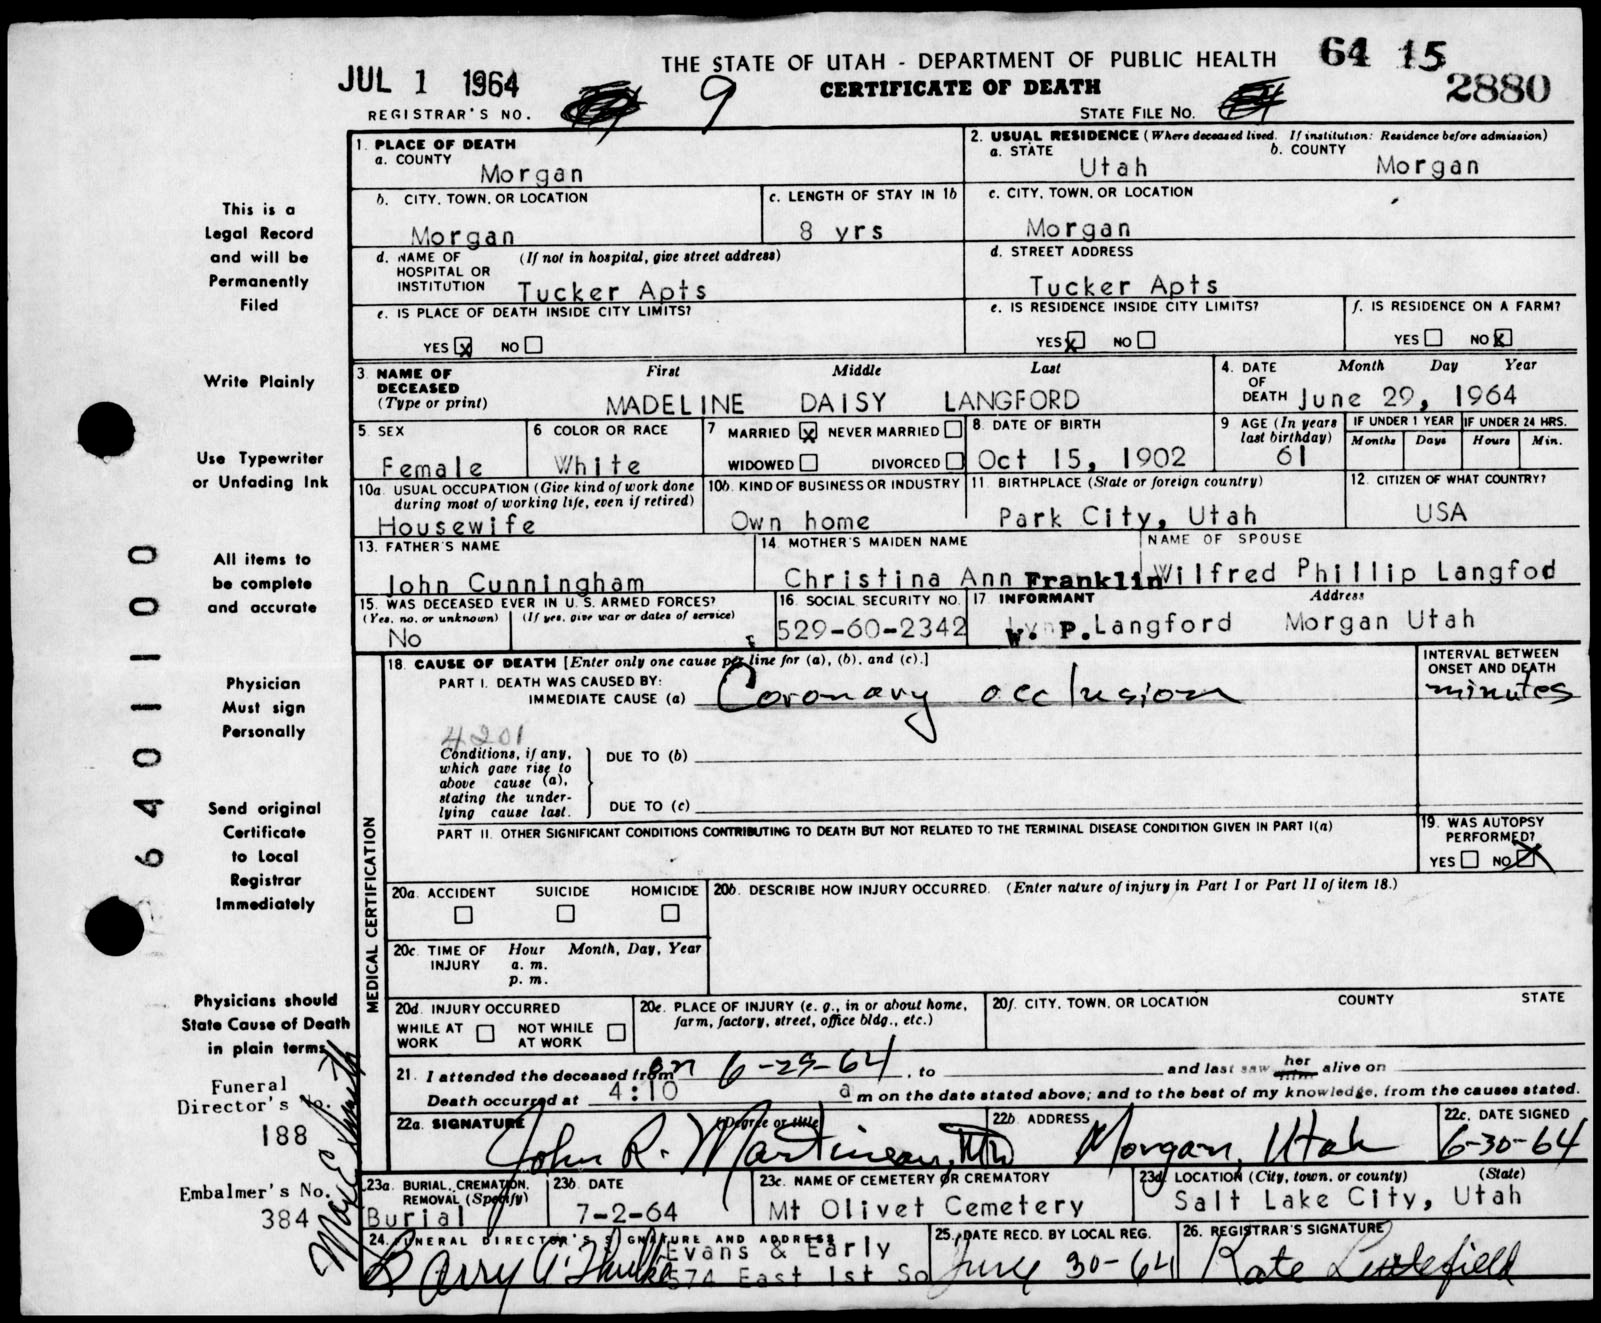 THE STATE OF UTAH - DEPARTMENT OF PUBLIC HEALTH 64 15
JUL 1 1964 CERTIFICATE OF DEATH 2880
REGISTRAR'S NO. 9 STATE FILE NO.
1. PLACE OF DEATH
a. COUNTY
Morgan
2. USUAL RESIDENCE (Where deceased lived. If institution: Residence before admission)
a. STATE b. COUNTY
Utah Morgan
b. CITY, TOWN, OR LOCATION c. LENGTH OF STAY IN 1b
Morgan 8 yrs
c. CITY, TOWN, OR LOCATION
Morgan
d. NAME OF (If not in hospital, give street address)
HOSPITAL OR
INSTITUTION Tucker Apts
d. STREET ADDRESS
Tucker Apts
e. IS PLACE OF DEATH INSIDE CITY LIMITS?
YES X NO
e. IS RESIDENCE INSIDE CITY LIMITS?
YES X NO
f. IS RESIDENCE ON A FARM?
YES NO X
3. NAME OF DECEASED (Type or print) First Middle Last
MADELINE DAISY LANGFORD
4. DATE OF DEATH Month Day Year
June 29, 1964
5. SEX
Female
6 COLOR OR RACE
White
7 MARRIED X NEVER MARRIED
WIDOWED DIVORCED
8. DATE OF BIRTH
Oct 15, 1902
9 AGE (In years last birthday)
61
IF UNDER 1 YEAR IF UNDER 24 HRS.
Months Days Hours Min.
10a. USUAL OCCUPATION (Give kind of work done
during most of working life, even if retired)
Housewife
10b. KIND OF BUSINESS OR INDUSTRY
Own home
11. BIRTHPLACE (State or foreign country)
Park City, Utah
12. CITIZEN OF WHAT COUNTRY?
USA
13. FATHER'S NAME
John Cunningham
14. MOTHER'S MAIDEN NAME
Christina Ann Franklin
NAME OF SPOUSE
Wilfred Phillip Langfod
15. WAS DECEASED EVER IN U. S. ARMED FORCES?
(Yes, no, or unknown) (If yes, give war or dates of service)
No
16. SOCIAL SECURITY NO.
529-60-2342
17. INFORMANT Address
W. P. Langford Morgan Utah
MEDICAL CERTIFICATION
18. CAUSE OF DEATH [Enter only one cause per line for (a), (b), and (c).]
PART I. DEATH WAS CAUSED BY:
IMMEDIATE CAUSE (a) Coronary occlusion
INTERVAL BETWEEN
ONSET AND DEATH
minutes
4201
Conditions, if any,
which gave rise to
above cause (a),
stating the under-
lying cause last.
DUE TO (b)
DUE TO (c)
PART II. OTHER SIGNIFICANT CONDITIONS CONTRIBUTING TO DEATH BUT NOT RELATED TO THE TERMINAL DISEASE CONDITION GIVEN IN PART I(a)
19. WAS AUTOPSY
PERFORMED?
YES NO X
20a. ACCIDENT SUICIDE HOMICIDE
20b. DESCRIBE HOW INJURY OCCURRED. (Enter nature of injury in Part I or Part II of item 18.)
20c. TIME OF INJURY Hour Month, Day, Year
a. m.
p. m.
20d. INJURY OCCURRED
WHILE AT WORK NOT WHILE AT WORK
20e. PLACE OF INJURY (e. g., in or about home,
farm, factory, street, office bldg., etc.)
20f. CITY, TOWN, OR LOCATION COUNTY STATE
21. I attended the deceased from on 6-29-64, to and last saw her him alive on
Death occurred at 4:10 a m on the date stated above; and to the best of my knowledge, from the causes stated.
22a. SIGNATURE (Degree or title)
John R. Martineau, MD
22b. ADDRESS
Morgan, Utah
22c. DATE SIGNED
6-30-64
23a. BURIAL, CREMATION,
REMOVAL (Specify)
Burial
23b. DATE
7-2-64
23c. NAME OF CEMETERY OR CREMATORY
Mt Olivet Cemetery
23d. LOCATION (City, town, or county) (State)
Salt Lake City, Utah
24. FUNERAL DIRECTOR'S SIGNATURE AND ADDRESS
Evans & Early
574 East 1st So
25. DATE RECD. BY LOCAL REG.
June 30-64
26. REGISTRAR'S SIGNATURE
Kate Littlefield
This is a
Legal Record
and will be
Permanently
Filed
Write Plainly
Use Typewriter
or Unfading Ink
All items to
be complete
and accurate
Physician
Must sign
Personally
Send original
Certificate
to Local
Registrar
Immediately
Physicians should
State Cause of Death
in plain terms
Funeral
Director's No.
188
Embalmer's No.
384
64011100